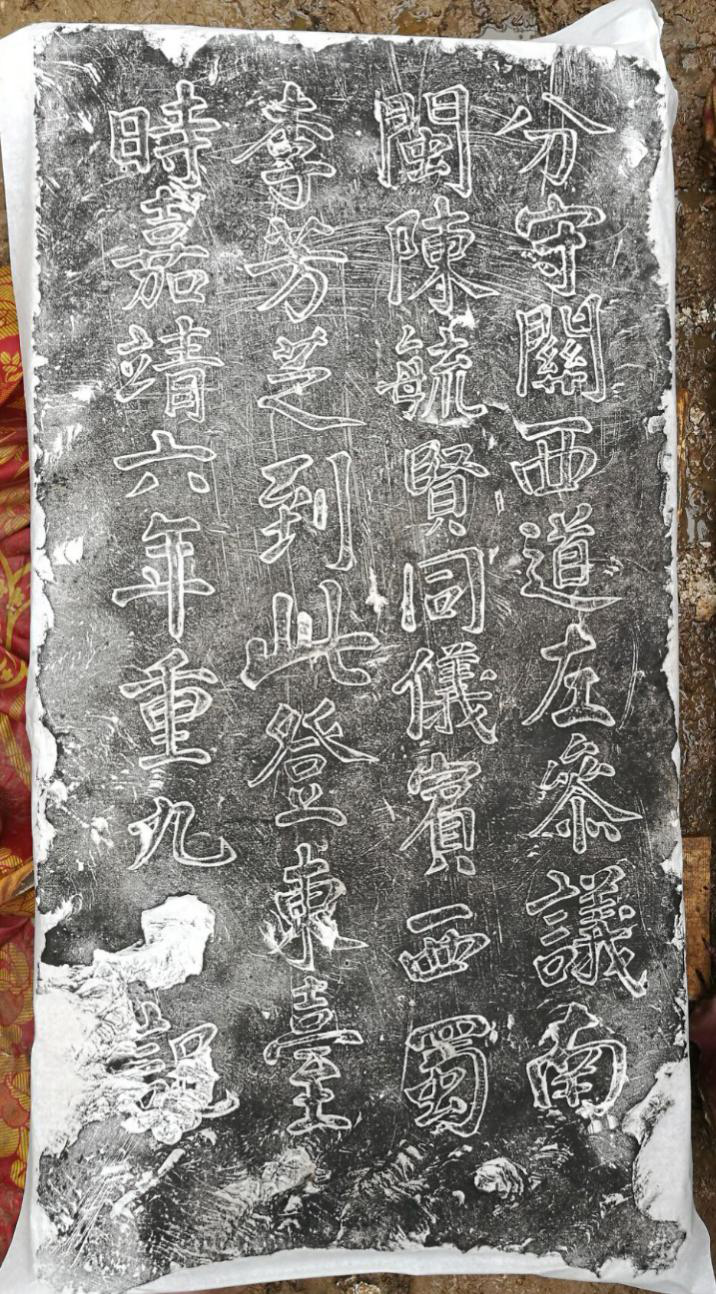 分守關西道左叅議南
閩陳毓賢同儀賓西蜀
李芳芝到此登東臺
時嘉靖六年重九